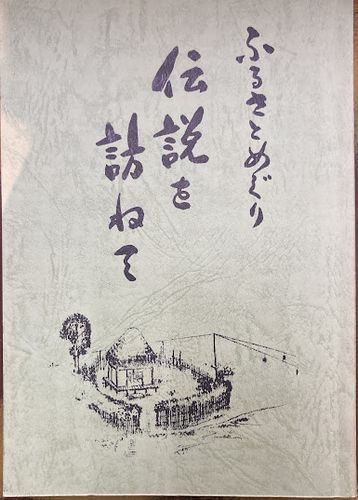 ふるさとめぐり
伝説を
訪ねて